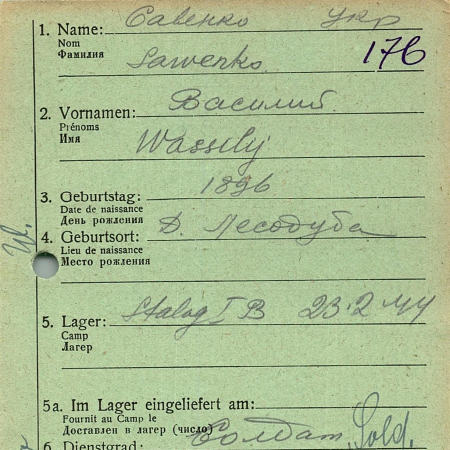 1. Name: Савенко Укр
Nom
Фамилия
Sawenko
176
2. Vornamen: Василий
Prénoms
Имя
Wassilj
3. Geburtstag: 1896
Date de naissance
День рождения
4. Geburtsort: Д. Лесодуба
Lieu de naissance
Место рождения
5. Lager: Stalag I B 23.2.44
Camp
Лагер
5a. Im Lager eingeliefert am:
Fournit au Camp le
Доставлен в лагер (число)
6. Dienstgrad: Солдат, Sold.